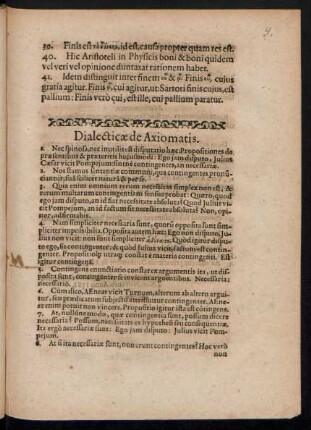 39. Finis est τὸ οὗ ἕνεκα, id est, causa propter quam res est.
40. Hic Aristoteli in Physicis boni & boni quidem
vel veri vel opinione duntaxat rationem habet.
41. Idem distinguit inter finem οὗ & ᾧ. Finis οὗ, cujus
gratia agitur. Finis ᾧ, cui agitur, ut: Sartori finis cujus, est
pallium: Finis verò cui, est ille, cui pallium paratur.
Dialecticæ de Axiomatis.
1. Nec spinosa, nec inutilis sit disputatio hæc: Propositiones de
præsentibus & præteritis hujusmodi: Ego jam disputo, Julius
Cæsar vicit Pompejum sintne contingentes, an necessariæ.
2. Nos stamus sententiæ communi, quæ contingentes pronun-
ciat:
3. Quia enim omnium rerum necessitas simplex non est, &
rerum multarum contingentia in sensus
ego jam disputo, an id fiat necessitate absoluta? Quod Julius vi-
cit Pompejum, an id factum sit necessitate absoluta? Non, opi-
nor,
4. Nam simpliciter necessaria sunt, quorum opposita sunt sim-
pliciter impossibilia. Opposita autem hæc: Ego non disputo, Ju-
lius non vicit: non sunt simpliciter Quod igitur dispu-
to ego, sit contingenter: & quod Julius vicit, factum est contin-
genter. Propositio utraq; constat materia contingenti. Est
igitur contingens.
5. Contingens enunciatio constat ex argumentis ita, ut dis-
posita sunt, contingenter se invicem arguentibus. Necessaria
necessariò.
6. Cum dico, Æneas vicit Turnum, alterum ab altero arguitur,
seu prædicatum subjecto attribuitur contingenter. Æne-
am enim potuit non vincere. Propositio igitur ista est contingens.
7. At, nullone modo, quæ contingentia sunt, possum dicere
necessaria? Possum, necessitate ex hypothesi seu consequentiæ.
Ita ergò necessariæ sunt: Ego jam disputo: Julius vicit Pom-
pejum.
8. At si ita necessariæ sunt, non erunt contingentes? Hoc verò
non